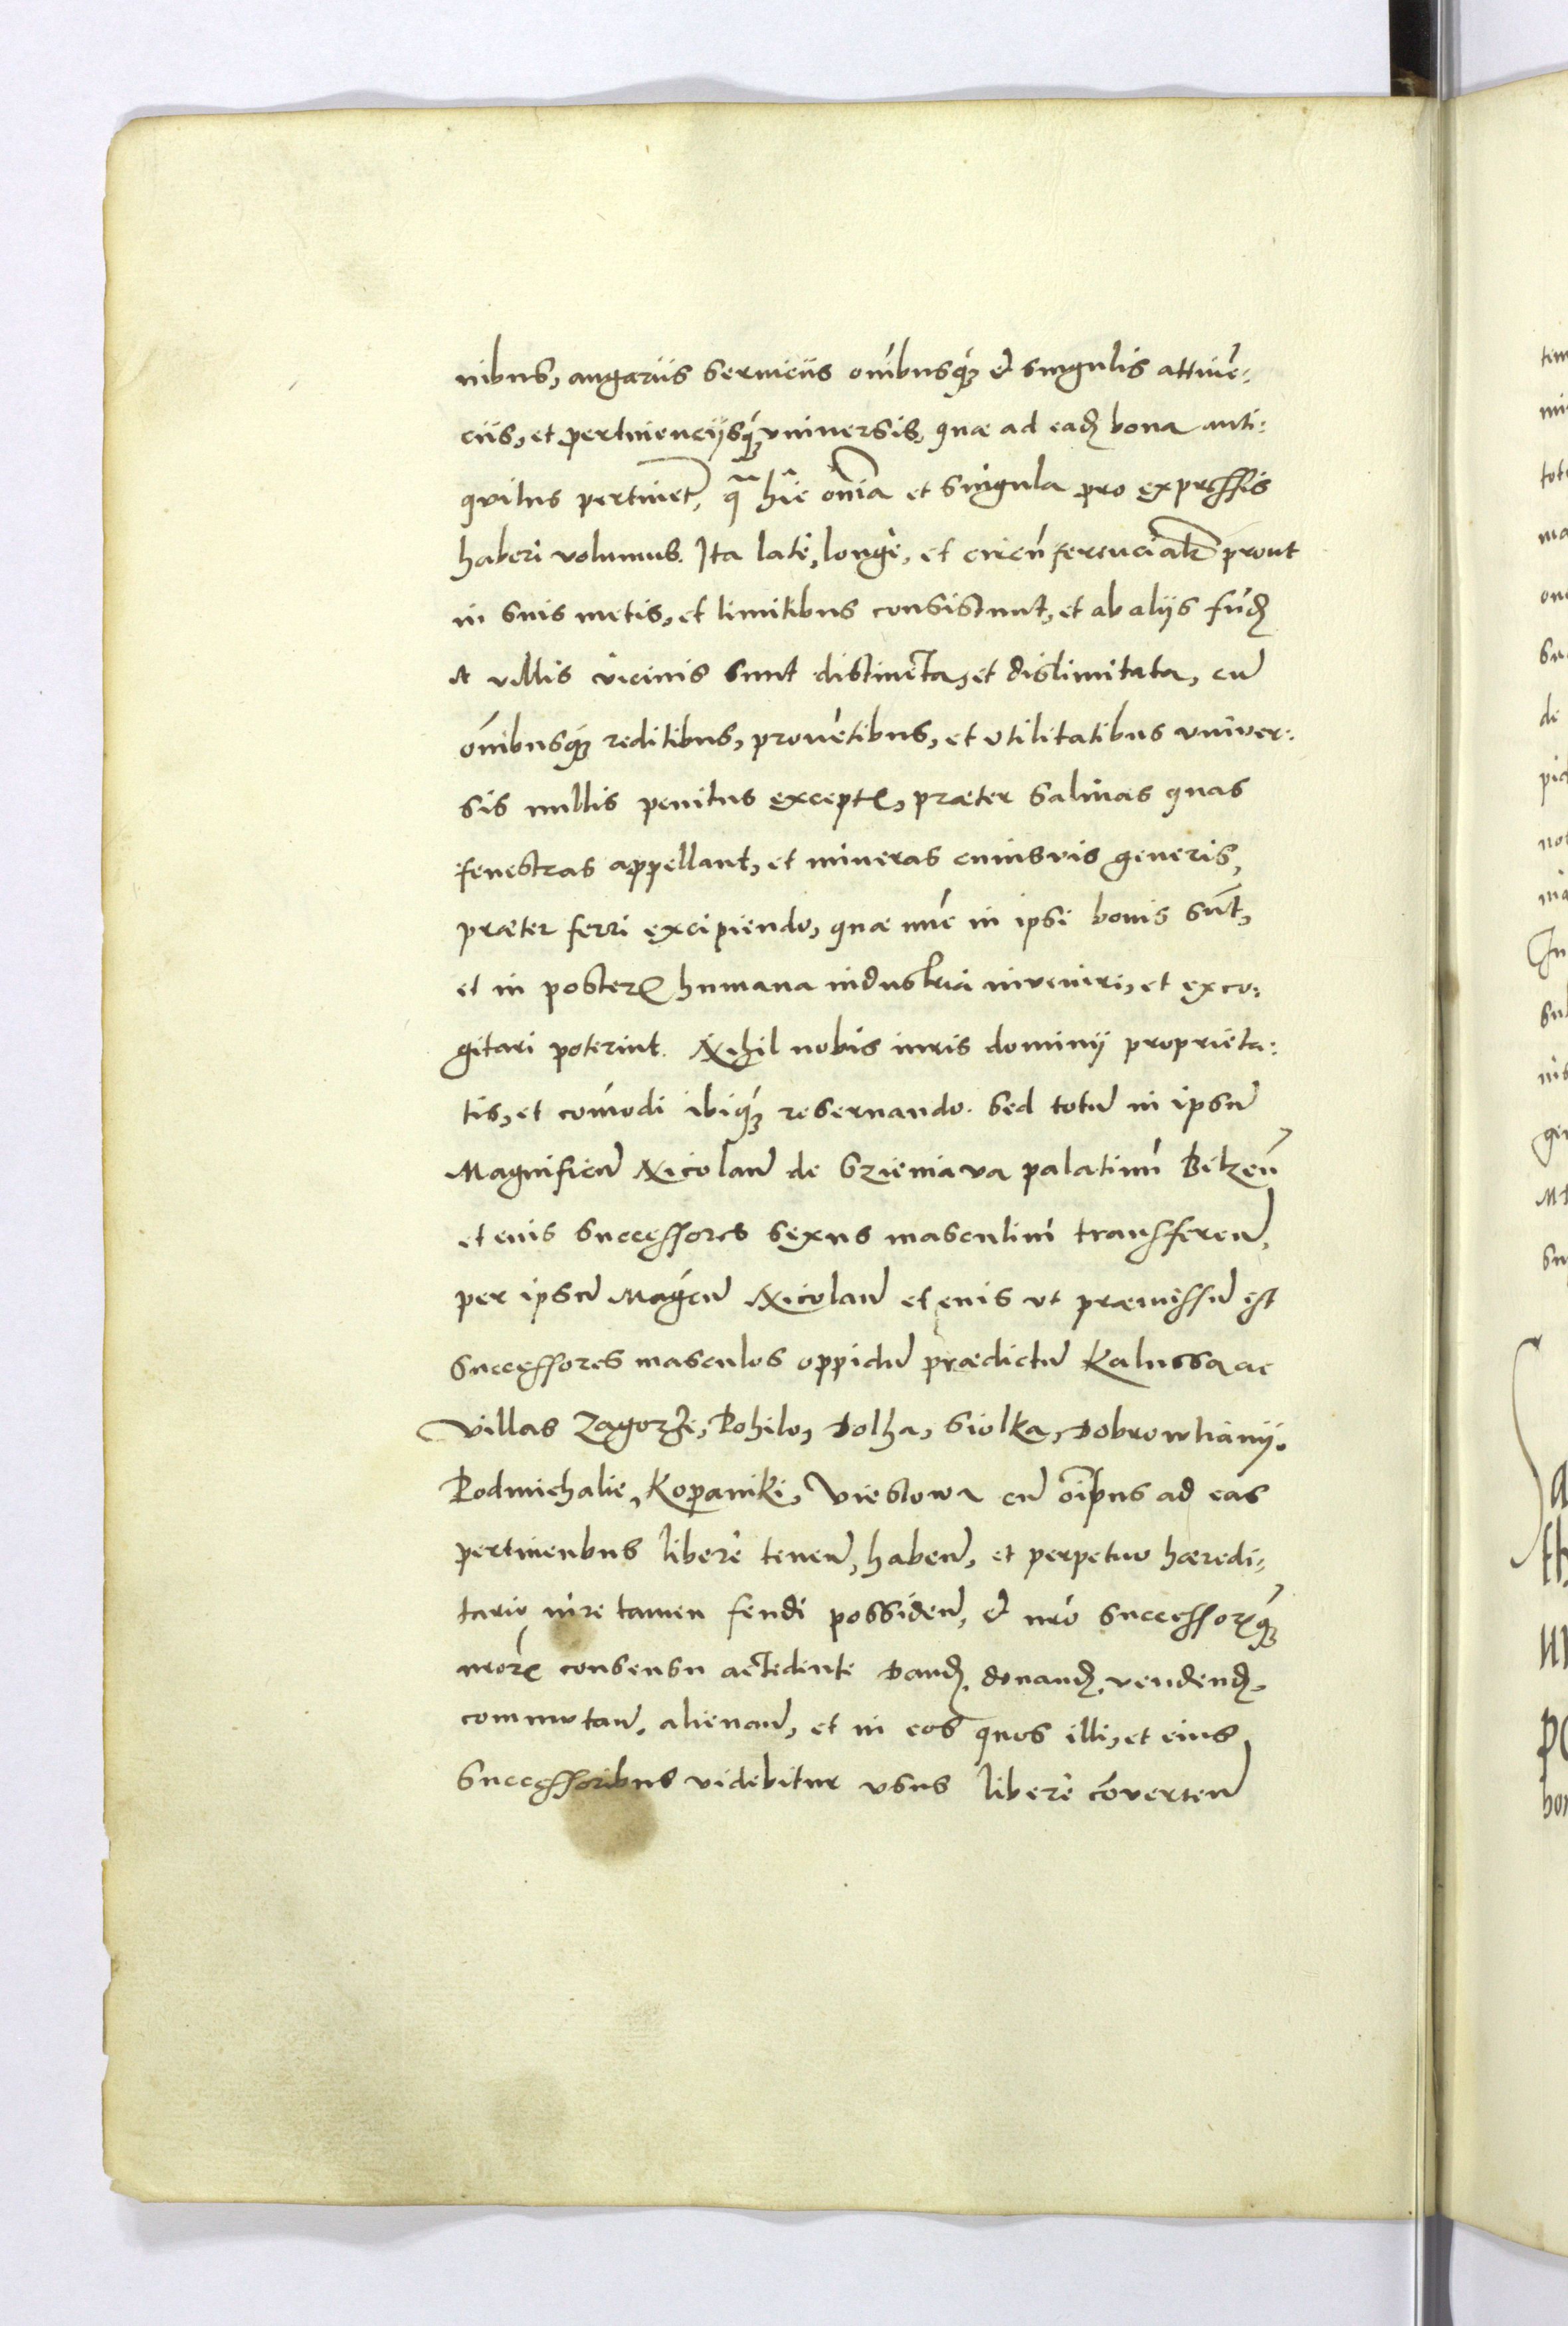 nibus, angariis serviciis oīnibusq́ꝫ et singulis attinē-
ciis, et pertinencijsq́ꝫ universis, quae ad eadꝫ bona anti-
quitus pertinet̄, q̄a hīc oīnia et singula pro expressis
haberi volumus. Ita latè, longè, et circūferenciatꝫ prout
in suis metis, et limitibus consistunt, et ab alijs fūdꝫ
et villis vicinis sunt distincta, et dislimitata, cū
oīnibusq́ꝫ reditibus, provētibus, et utilitatibus univer-
sis nullis penitus exceptꝭ, praeter salinas quas
fenestras appellant, et mineras cuiusvis generis,
praeter ferri excipiendo, quae nūc in ipsi bonis sūt,
et in posterꝝ humana industria inveniri, et exco-
gitari poterint. Nihil nobis iuris dominij proprieta-
tis, et cōmodi ibiq́ꝫ reservando. Sed totū in ipsū
Magnificū Nicolaū de Szieniava palatinū Belzeñ
et eius successores sexus masculini transfferen̄,
per ipsū Magc̄ū Nicolaū et eius ut praemissū est
successores masculos oppidū praedictū Kalussa ac
villas Zagorze, Pohilo, Dolha, Siolka, Dobrowlianij.
Podmichalie, Kopanki, Viestowa cū oībus ad eas
pertinenbus liberè tenen̄, haben̄, et perpetuo haeredi-
tario iure tamen feudi possiden̄, et nr̄o successorꝝq́ꝫ
nr̄orꝝ consensu accedente dandꝫ, donandꝫ, vendendꝫ,
commutan̄, alienan̄, et in eos quos illi, et eius
successoribus videbitur usus liberè cōverten̄